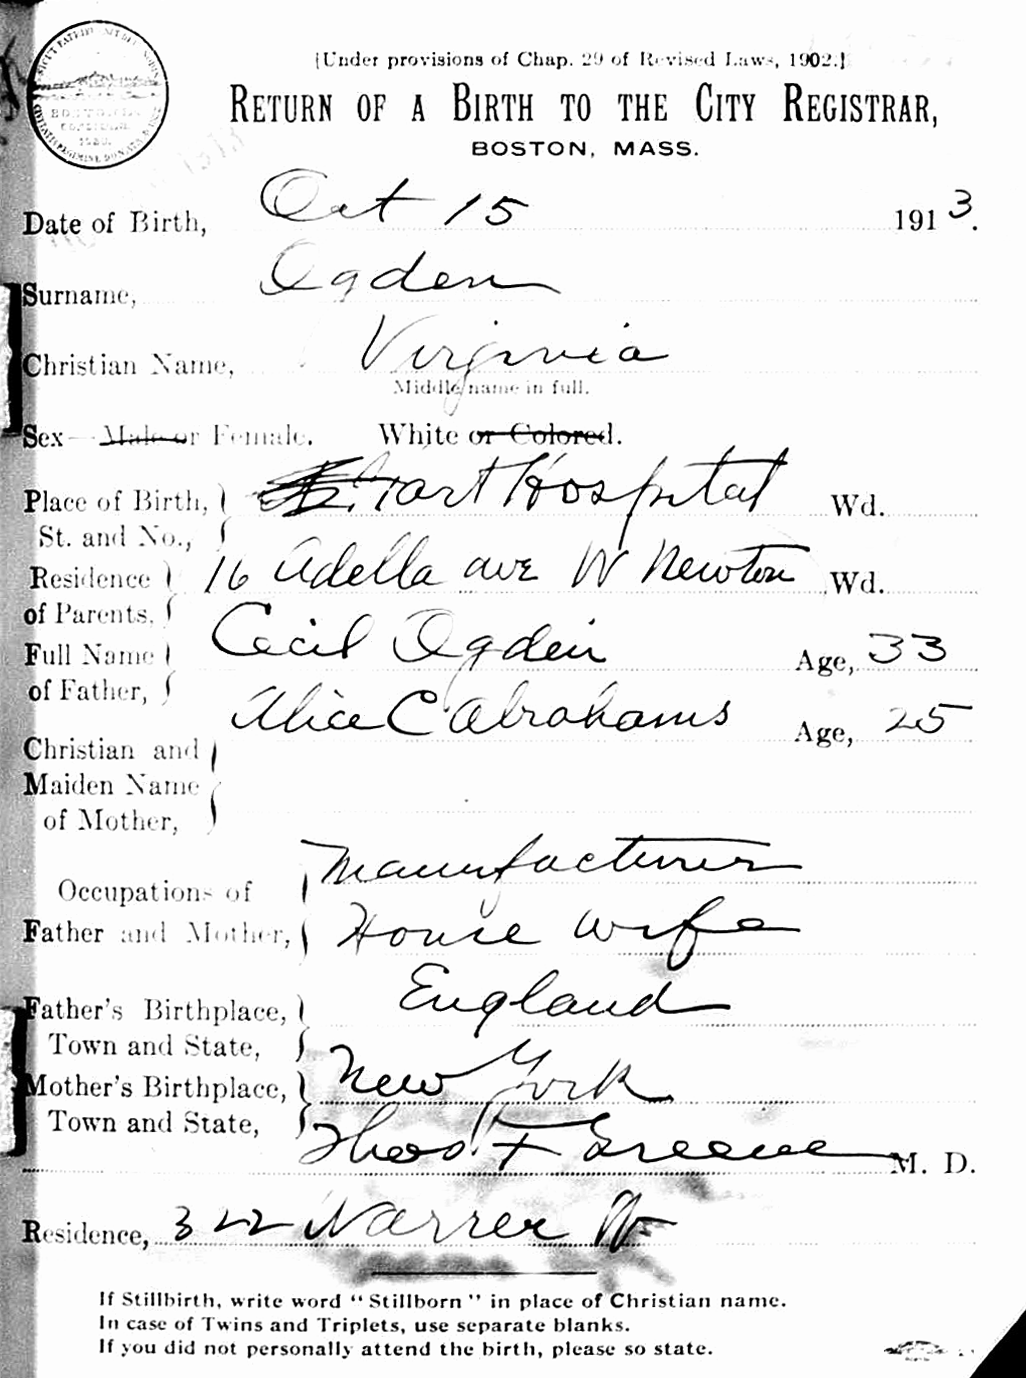 [Under provisions of Chap. 29 of Revised Laws, 1902.]
RETURN OF A BIRTH TO THE CITY REGISTRAR,
BOSTON, MASS.
Date of Birth, Oct 15 1913.
Surname, Ogden
Christian Name, Virginia
Middle name in full.
Sex—Male or Female. White or Colored.
Place of Birth, Hart Hospital Wd.
St. and No.,
Residence of Parents, 16 Adella ave W Newton Wd.
Full Name of Father, Cecil Ogden Age, 33
Alice C Abrahams Age, 25
Christian and
Maiden Name
of Mother,
Occupations of Manufacturer
Father and Mother, House wife
Father's Birthplace, England
Town and State,
Mother's Birthplace, New York
Town and State,
Thos F Greene M. D.
Residence, 322 Warren
If Stillbirth, write word "Stillborn" in place of Christian name.
In case of Twins and Triplets, use separate blanks.
If you did not personally attend the birth, please so state.